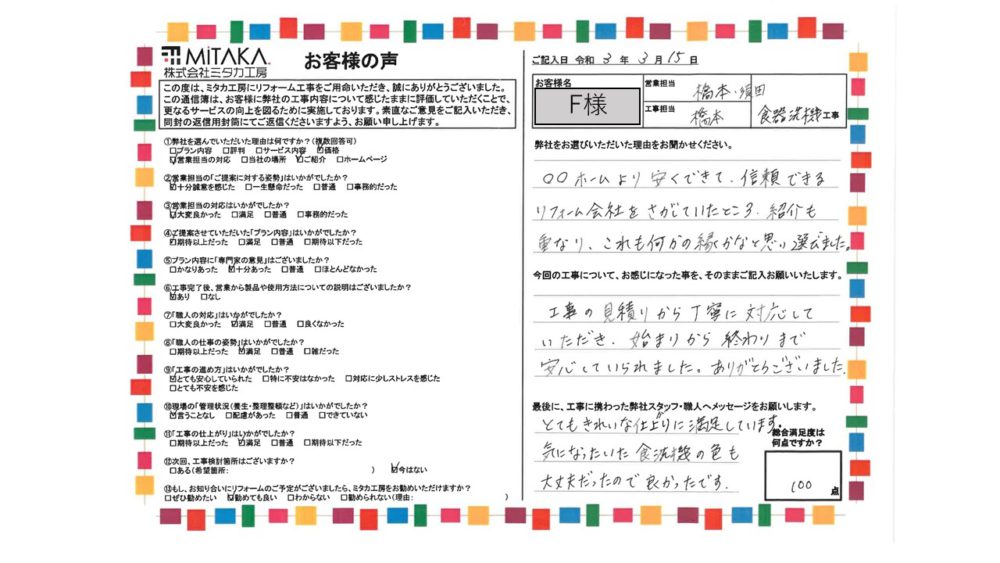 MiTAKA
株式会社ミタカ工房
お客様の声
この度は、ミタカ工房にリフォーム工事をご用命いただき、誠にありがとうございました。
この通信簿は、お客様に弊社の工事内容について感じたままに評価していただくことで、
更なるサービスの向上を図るために実施しております。素直なご意見をご記入いただき、
同封の返信用封筒にてご返信くださいますよう、お願い申し上げます。
①弊社を選んでいただいた理由は何ですか?(複数回答可)
□プラン内容 □評判 □サービス内容 ☑価格
☑営業担当の対応 □当社の場所 ☑ご紹介 □ホームページ
②営業担当の「ご提案に対する姿勢」はいかがでしたか?
☑十分誠意を感じた □一生懸命だった □普通 □事務的だった
③営業担当の対応はいかがでしたか?
☑大変良かった □満足 □普通 □事務的だった
④ご提案させていただいた「プラン内容」はいかがでしたか?
☑期待以上だった □満足 □普通 □期待以下だった
⑤プラン内容に「専門家の意見」はございましたか?
□かなりあった ☑十分あった □普通 □ほとんどなかった
⑥工事完了後、営業から製品や使用方法についての説明はございましたか?
☑あり □なし
⑦「職人の対応」はいかがでしたか?
□大変良かった ☑満足 □普通 □良くなかった
⑧「職人の仕事の姿勢」はいかがでしたか?
□期待以上だった ☑満足 □普通 □雑だった
⑨「工事の進め方」はいかがでしたか?
☑とても安心していられた □特に不安はなかった □対応に少しストレスを感じた
□とても不安を感じた
⑩現場の「管理状況(養生・整理整頓など)」はいかがでしたか?
☑言うことなし □配慮があった □普通 □できていない
⑪「工事の仕上がり」はいかがでしたか?
□期待以上だった ☑満足 □普通 □期待以下だった
⑫次回、工事検討箇所はございますか?
□ある(希望箇所: ) ☑今はない
⑬もし、お知り合いにリフォームのご予定がございましたら、ミタカ工房をお勧めいただけますか?
□ぜひ勧めたい ☑勧めても良い □わからない □勧められない(理由: )
ご記入日 令和 3 年 3 月 15 日
お客様名
F様
営業担当 橋本・須田
工事担当 橋本
食器洗機工事
弊社をお選びいただいた理由をお聞かせください。
○○ホームより安くできて、信頼できる
リフォーム会社をさがしていたところ、紹介も
重なり、これも何かの縁かなと思い選びました。
今回の工事について、お感じになった事を、そのままご記入お願いいたします。
工事の見積りから丁寧に対応して
いただき、始まりから終わりまで
安心していられました。ありがとうございました。
最後に、工事に携わった弊社スタッフ・職人へメッセージをお願いします。
とてもきれいな仕上りに満足しています。
気になったいた食洗機の色も
大丈夫だったので良かったです。
総合満足度は
何点ですか?
100 点